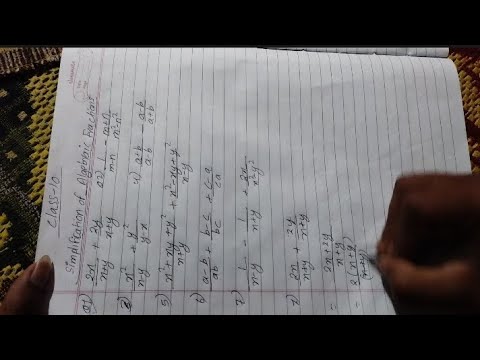 Class-10
Simplification of Algebraic Fractions
Q1) 2x/x+y + 2y/x+y 2) 1/m-n - m+n/m²-n²
3) x²/x-y + y²/y-x 4) a+b/a-b - a-b/a+b
5) x²+xy+y²/x+y + x²-xy+y²/x-y
6) a-b/ab + b-c/bc + c-a/ca
7) 1/x-y - 1/x+y + 2x/x²-y²
2x/x+y + 2y/x+y
= 2x+2y/x+y
= 2(x+y)/(x+y)